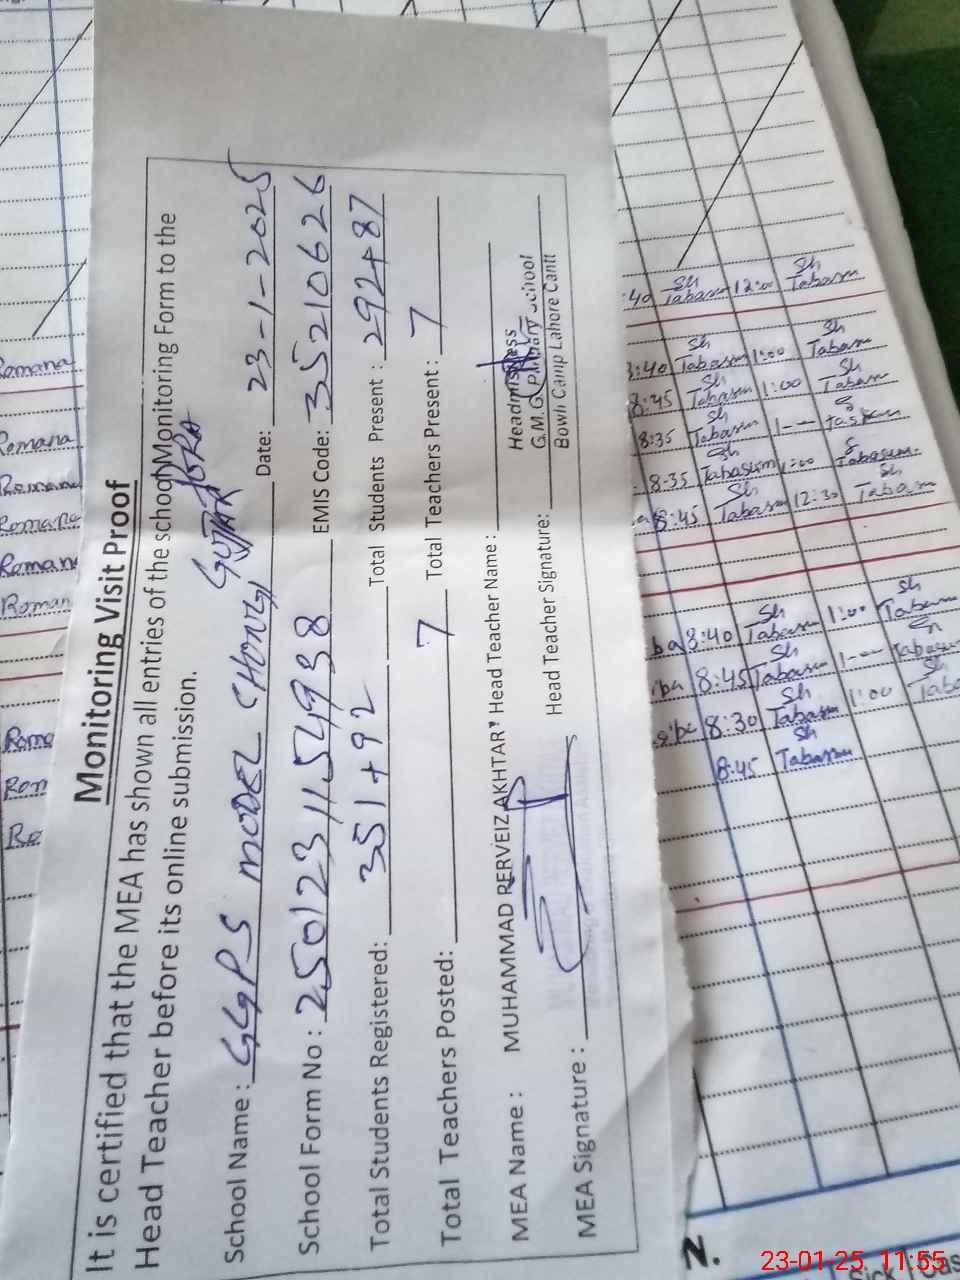 Monitoring Visit Proof
It is certified that the MEA has shown all entries of the school Monitoring Form to the
Head Teacher before its online submission.
School Name : GGPS MODEL CHONGI Date: 23-1-2025
School Form No : 2501231154938 EMIS Code: 35210626
Total Students Registered: 351+92 Total Students Present : 292+87
Total Teachers Posted: 7 Total Teachers Present : 7
MEA Name : MUHAMMAD RERVEIZ AKHTAR" Head Teacher Name :
MEA Signature : Head Teacher Signature:
Headmistress
G.M.G. Primary School
Bowli Camp Lahore Cantt
Romana
Romana
Romana
Romana
Roman
Roman
Roma
Rom
Re
:40 Sh Tabasm 12:00 Sh Tabasm
8:40 Sh Tabasum 1:00 Sh Tabasm
8:45 Sh Tabasm 1:00 Sh Tabasm
8:35 Sh Tabasm 1--
8-35 Sh Tabasum 1:00 Tabasum
8:45 Sh Tabasm 12:30 Sh Tabasm
8:40 Sh Tabasm 1:00 Sh Tabasm
8:45 Sh Tabasum 1-- Tabasum
8:30 Sh Tabasm 1:00 Sh Taba
8:45 Sh Tabasum
N.
23-01-25 11:55